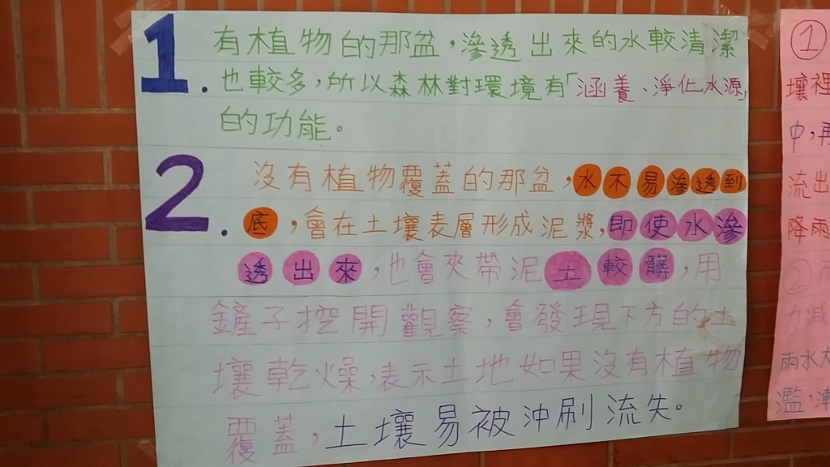 1. 有植物的那盆，滲透出來的水較清潔
也較多，所以森林對環境有「涵養、淨化水源」
的功能。
2. 沒有植物覆蓋的那盆，水不易滲透到
底，會在土壤表層形成泥漿，即使水滲
透出來，也會夾帶泥土較髒，用
鏟子挖開觀察，會發現下方的土
壤乾燥，表示土地如果沒有植物
覆蓋，土壤易被沖刷流失。
①
壤裡
中，再
流出
降雨
②
力減
雨水大
濫，